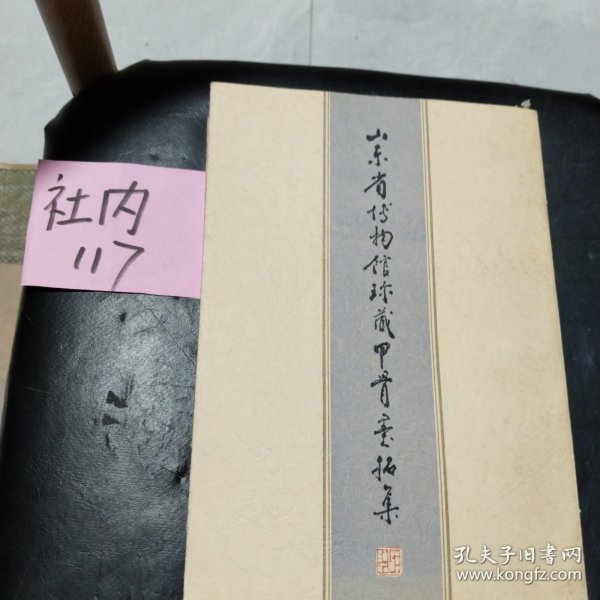 社内
117
山东省博物馆珍藏甲骨墨拓集
孔夫子旧书网
www.kongfz.com